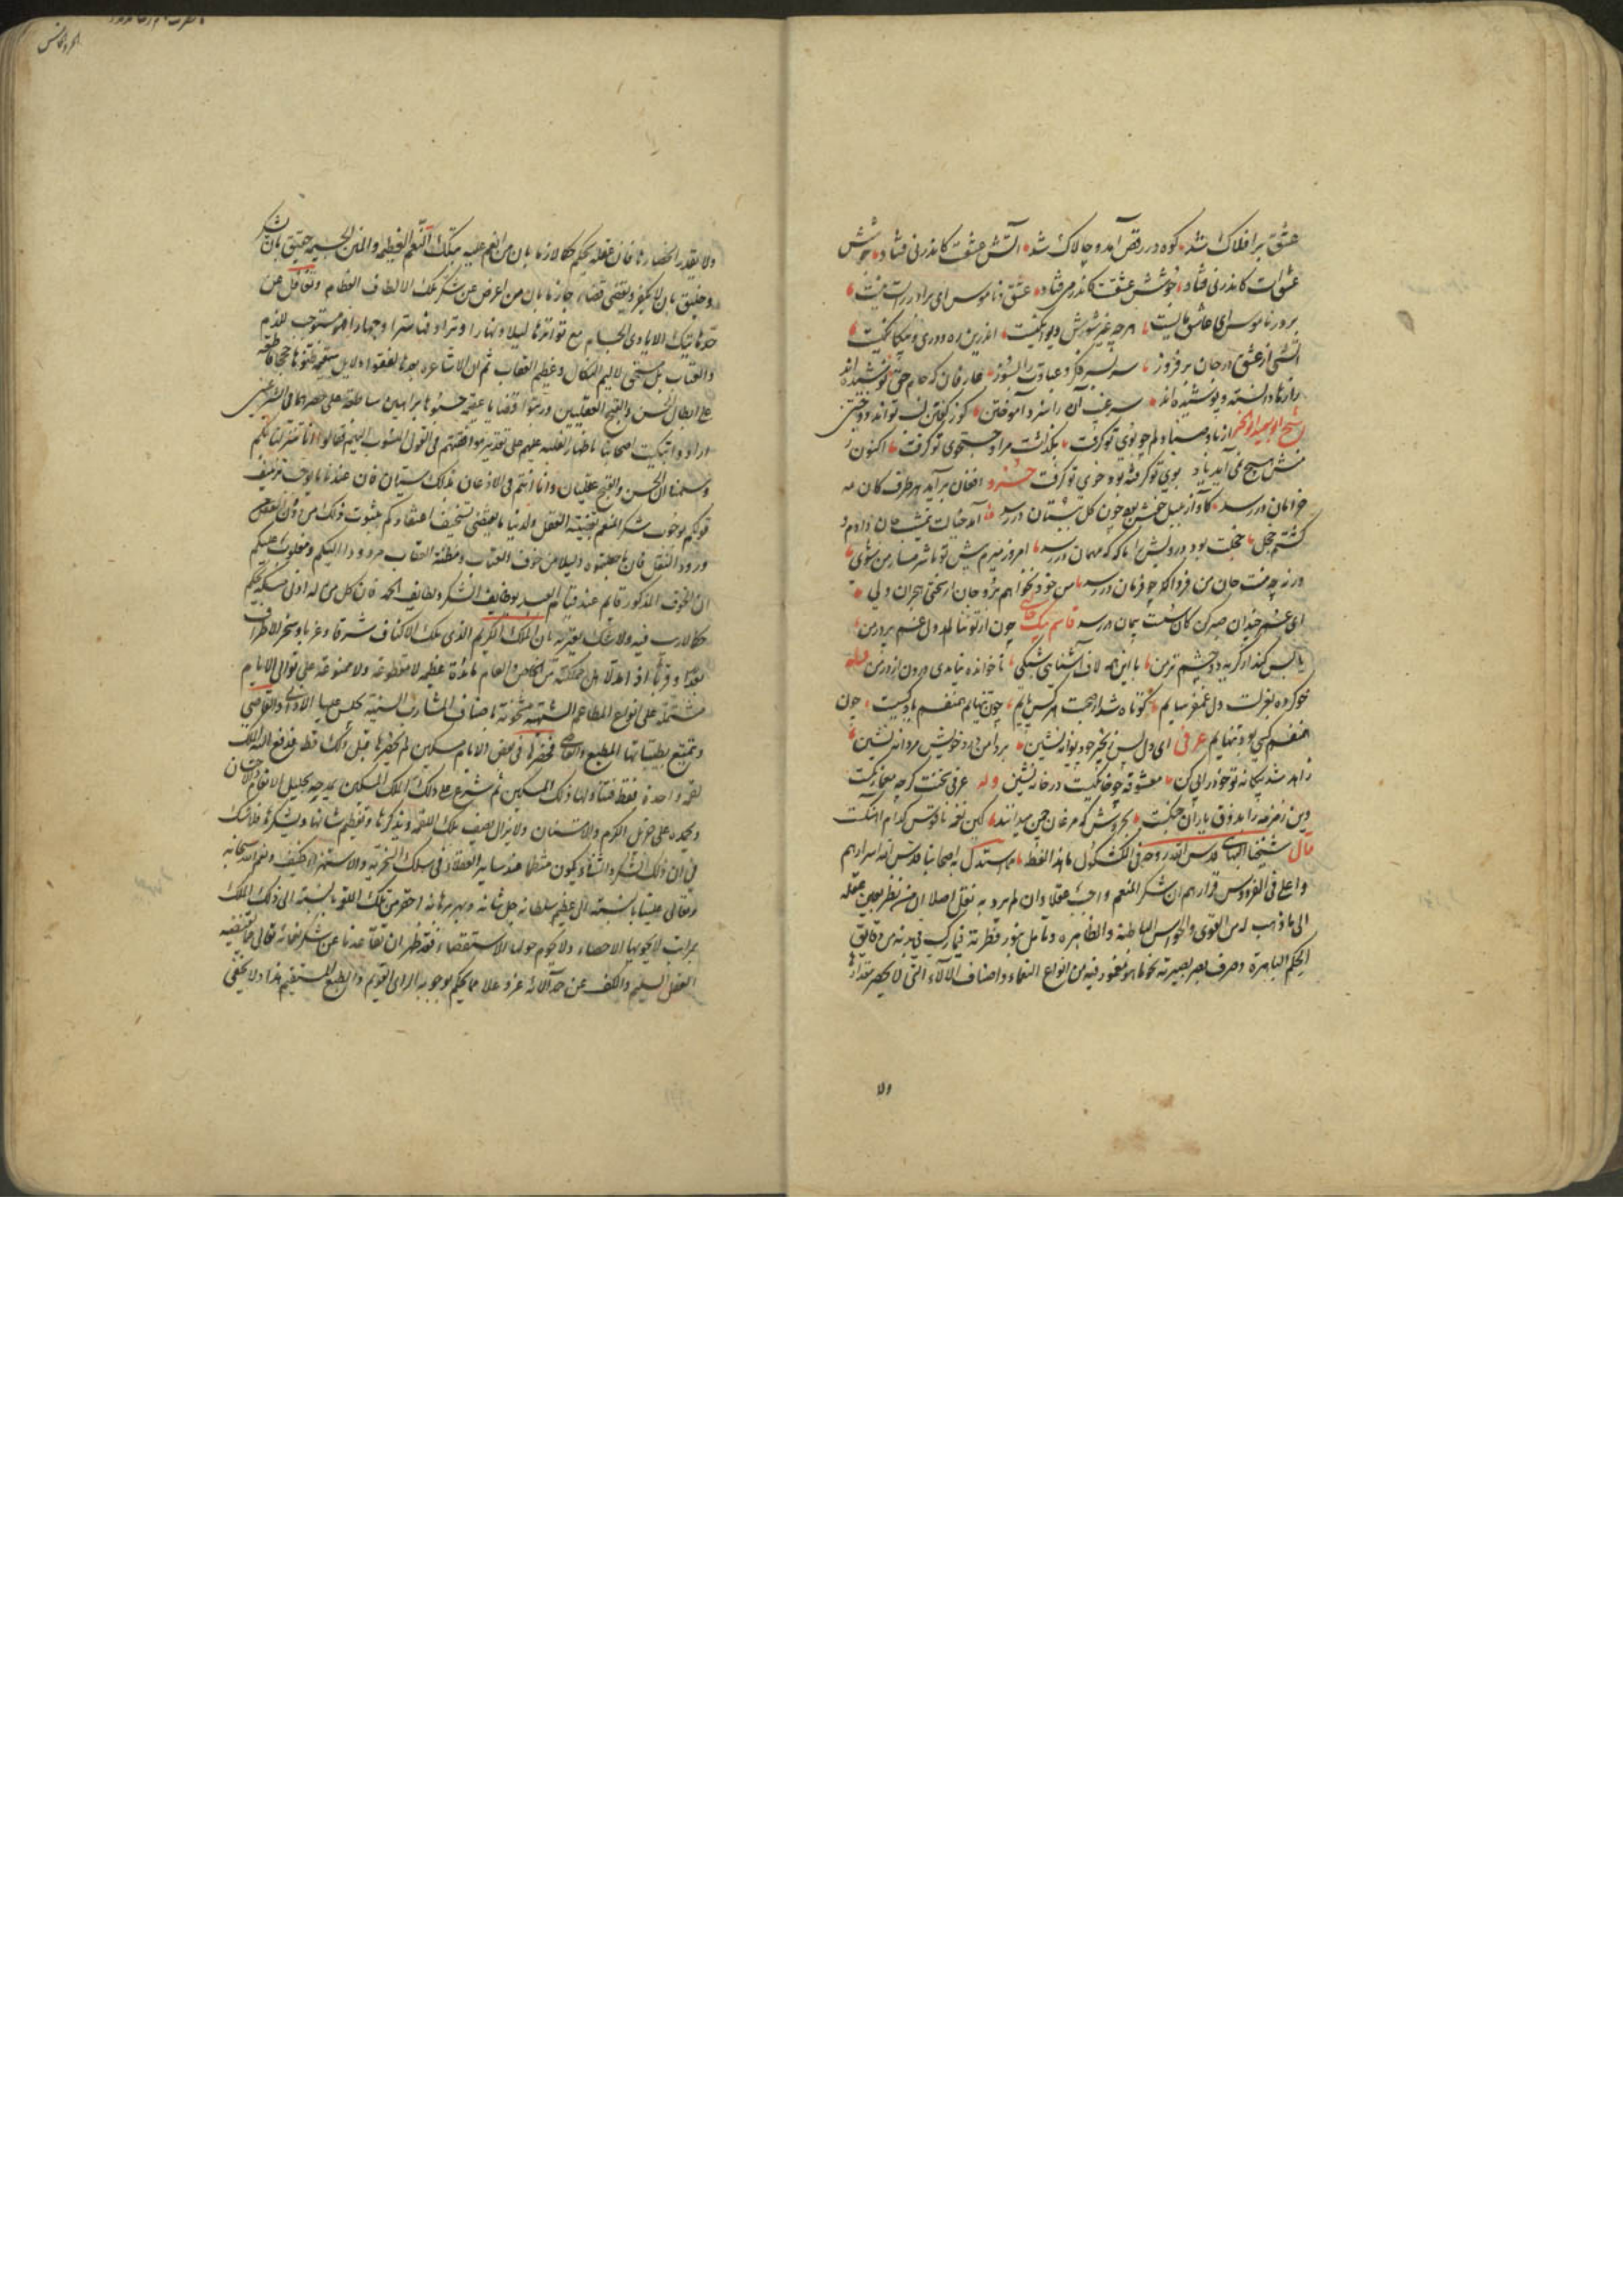 عشق بر افلاک شد کوه در رقص آمد و چالاک شد آتش عشقست کاندر نی فتاد جوشش
عشق است کاندر نی فتاد جوشش عشقست کاندر می فتاد عشق و ناموس ای برادر راست نیست
بر در ناموس ای عاشق مایست هر چه غیر شورش و دیوانگیست اندرین ره دوری و بیگانگیست
آتشی از عشق در جان بر فروز سر بسر فکر و عبارت را بسوز عارفان که جام حق نوشیده‌اند
رازها دانسته و پوشیده‌اند سر غیب آن را سزد آموختن کو ز گفتن لب تواند دوختن
شیخ ابو سعید ابو الخیر از باد صبا دلم چو بوی تو گرفت بگذاشت مرا و جستجوی تو گرفت اکنون ز
منش هیچ نمی آید یاد بوی تو گرفته بود و خوی تو گرفت خسرو افغان بر آید هر طرف کان مه
خرامان در رسد کآواز بلبل خوش بود چون گل ببستان در رسد آمد خیالت نیمشب جان دادم و
گشتم خجل خجلت بود درویش را که مهمان در رسد امروز میرم پیش تو تا شرمسار من شوی
ورنه چه منت جان من فردا که چو فرمان در رسد من خود نخواهم برد جان از سختی هجران ولی
ای عمر چندان صبر کن کان سست پیمان در رسد قاسم بیک چون از تو ننالم دل غم پرور من
یا بس کند از گریه دو چشم تر من با این همه لاف آشنایی شبکی ناخوانده نیامدی درون از در من وله
خو کرده بعزلت دل غمفرسایم کوتاه شد از صحبت هر کس پایم چون تنهایم همنفسم یاد کسیست چون
همنفسم کسی بود تنهایم عرفی ای دل پس زنجیر چو دیوانه نشین بر دامن درد خویش مردانه نشین
ز آمد شد بیگانه تو خود را پی کن معشوقه چو خانگیست در خانه نشین وله عرفی سخنت گرچه معما رنگست
وین زمزمه را بذوق یاران جنگست بخروش که مرغان چمن میدانند کین نغمه ناقوس کدام آهنگست
قال شیخنا البهائی قدس الله روحه فی الکشکول ما هذا لفظه مما استدل به اصحابنا قدس الله اسرارهم
و اعلی فی الفردوس قرارهم ان شکر المنعم واجب عقلا و ان لم یرد به نقل اصلا ان من نظر بعین عقله
الی ما وهب له من القوی و الحواس الباطنة و الظاهرة و تأمل بنور فطرته فیما رکب فی بدنه من دقایق
الحکم الباهرة و صرف بصر بصیرته نحو ما هو مغمور فیه من انواع النعماء و اصناف الآلاء التی لا یحصر مقدارها
ولا
ولا یقدر انحصارها فان عقله یحکم حکما لازما بان من انعم علیه بتلک النعم العظیمة و المنن الجسیمة حقیق بان یشکر
و خلیق بان لا یکفر و یقضی قضاء جازما بان من اعرض عن شکر تلک الالطاف العظام و تغافل عن
حمد هاتیک الایادی الجسام مع تواترها لیلا و نهارا و ترادفها سرا و جهارا فهو مستوجب للذم
و العتاب بل مستحق لالیم النکال و عظیم العقاب ثم ان الاشاعرة بعد ما لفقوا دلایل سقیمة ظنوها حججا قاطعة
علی ابطال الحسن و القبح العقلیین و رتبوا قضایا عقیمة حسبوها براهین ساطعة علی حصرهما فی الشرعیین
ارادوا تبکیت اصحابنا باظهار الغلبة علیهم علی تقدیر موافقتهم فی القول المنسوب الیهم فقالوا اننا تنزلنا الیکم
و سلمنا ان الحسن و القبح عقلیان و انا انتم فی الاذعان بذلک سیّان فان عندنا ما یوجب تزییف
قولکم بوجوب شکر المنعم بقضیة العقل و لدینا ما یقتضی تسخیف اعتقادکم بثبوت ذلک من دون النقل
و ورود النقل فان ما جعلتموه دلیلا من خوف العتاب و مظنة العقاب مردود الیکم و مقلوب علیکم
اذ الخوف المذکور قایم عند قیام العبد بوظایف الشکر و لطایف الحمد فان کل من له ادنی مسکة یحکم
حکما لا ریب فیه و لا شک یعتریه بان الملک الکریم الذی ملک الاکناف شرقا و غربا و سخر الاطراف
بعدا و قربا اذا مد لاهل مملکته من الخاص و العام مائدة عظیمة لا مقطوعة و لا ممنوعة علی توالی الایام
مشتملة علی انواع المطاعم الشهیة مشحونة باصناف المشارب السنیة یجلس علیها الادنی و القاصی
و یتمتع بطیباتها المطیع و العاصی فحضرها فی بعض الایام مسکین لم یحضرها قبل ذلک قط فدفع الیه الملک
لقمة واحدة فقط فتناولها ذلک المسکین ثم شرع علی ذلک الملک المسکین یمدحه بجلیل الانعام و الاحسان
و یحمده علی جزیل الکرم و الامتنان و لا یزال یصف تلک اللقمة و یذکرها و یعظم شأنها و یشکرها فلا شک
فی ان ذلک الشکر و الثناء یکون منتظما عند سایر العقلاء فی سلک السخریة و الاستهزاء فکیف و نعم الله سبحانه
و تعالی علینا بالنسبة الی عظیم سلطانه جل شأنه و بهر برهانه احقر من تلک اللقمة بالنسبة الی ذلک الملک
بمراتب لا یحویها الاحصاء و لا یحوم حولها الاستقصاء فقد ظهر ان تقاعدنا عن شکر نعمائه تعالی مما یقتضیه
العقل السلیم و الکف عن حمد آلائه عز و علا مما یحکم بوجوبه الرای القویم و الطبع المستقیم هذا و لا یخفی